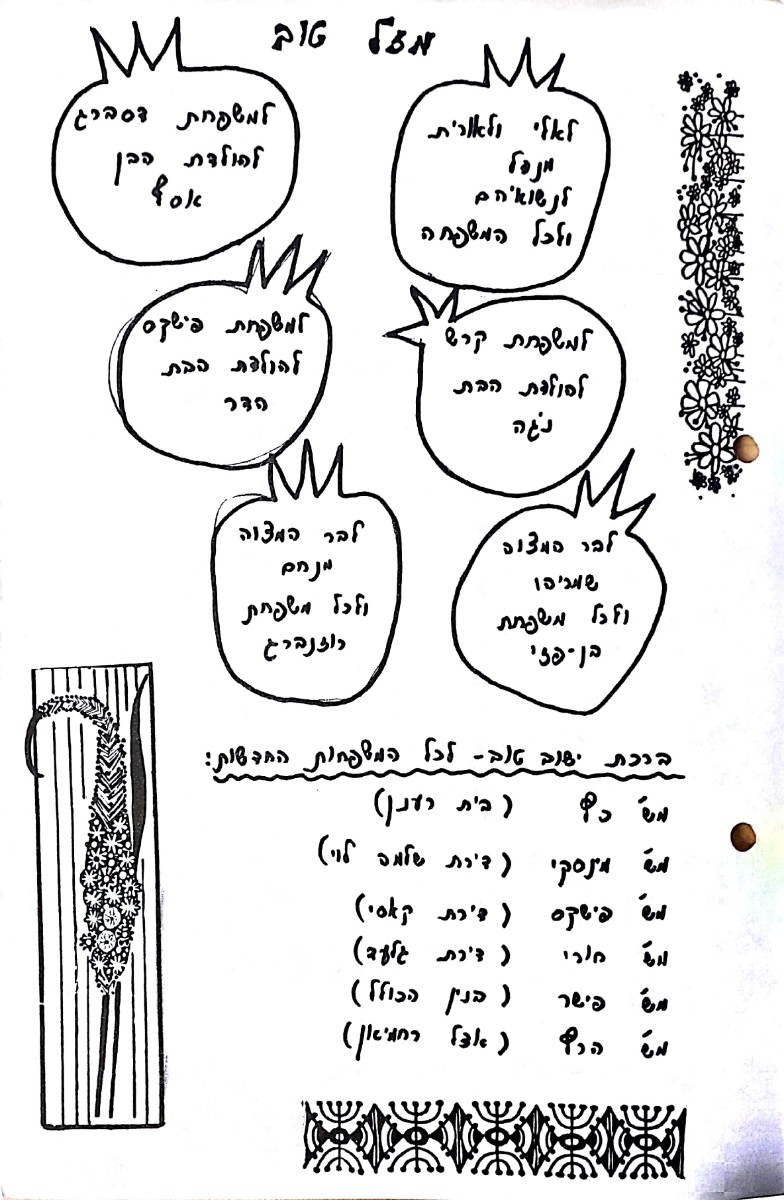 מזל טוב
לאלי ולאורית
מנדל
לנשואיהם
ולכל המשפחה
למשפחת דסברג
להולדת הבן
אסף
למשפחת קרש
להולדת הבת
נגה
למשפחת פישקס
להולדת הבת
הדר
לבר המצוה
שמריהו
ולכל משפחת
בן-פזי
לבר המצוה
מנחם
ולכל משפחת
רוזנברג
ברכת ישוב טוב - לכל המשפחות החדשות:
מש' כץ (בית רענן)
מש' מינסקי (דירת שלמה לוי)
מש' פישקס (דירת קאסי)
מש' חורי (דירת גלעד)
מש' פישר (בנין הכולל)
מש' הרץ (אצל רחמיאן)